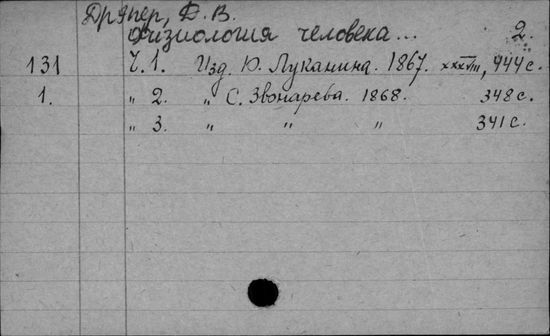 Дрэпер, Д. В.
Физиология человека... 2.
131 Ч. 1. Изд. Ю. Луканина. 1867. XXXVIII, 444 с.
1. " 2. " С. Звонарева. 1868. 348 с.
" 3. " " " 341 с.